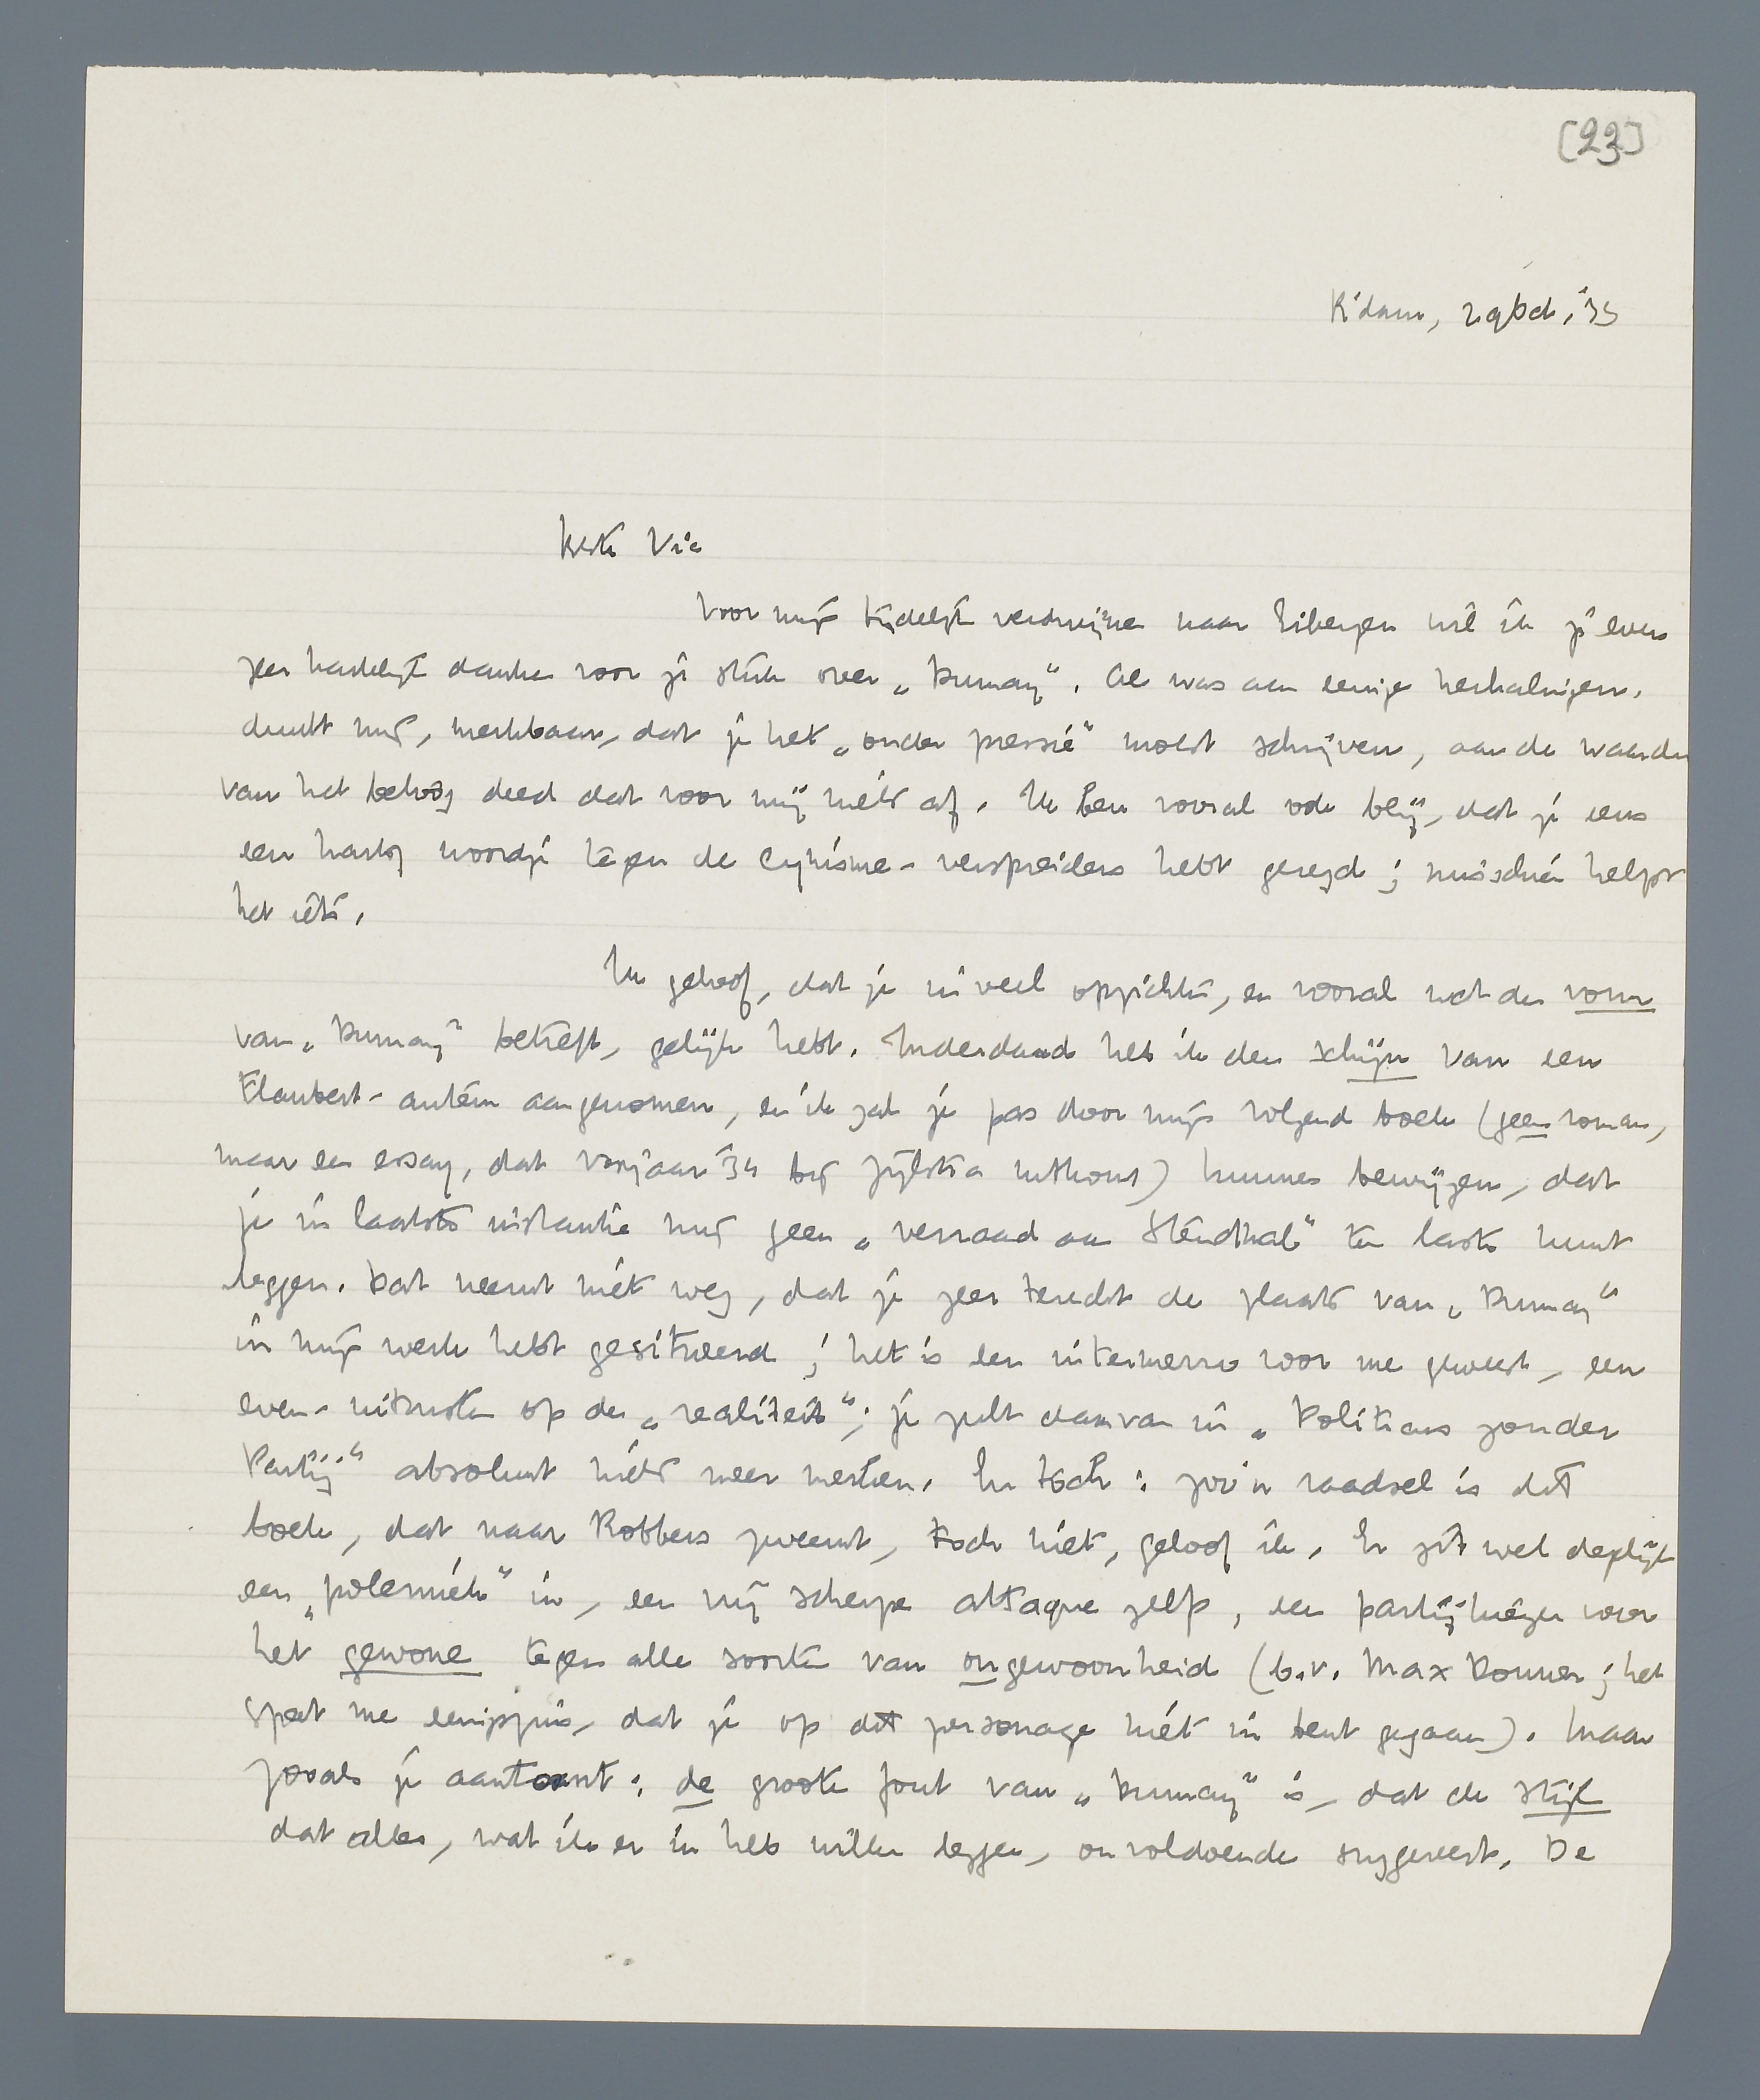 [23]
R'dam, 29 Oct. '33
Beste Vic
Voor mijn tijdelijk verdwijnen naar Eibergen wil ik je even
zeer hartelijk danken voor je stuk over „Dumay”. Al was aan eenige herhalingen,
dunkt mij, merkbaar, dat je het „onder pressie” moest schrijven, aan de waarde
van het betoog deed dat voor mij niets af. Ik ben vooral ook blij, dat je eens
een hartig woordje tegen de cynisme-verspreiders hebt gezegd; misschien helpt
het iets.
Ik geloof, dat je in veel opzichten, en vooral wat den vorm
van „Dumay” betreft, gelijk hebt. Inderdaad heb ik den schijn van een
Flaubert-auteur aangenomen, en ik zal je pas door mijn volgend boek (geen roman,
maar een essay, dat voorjaar '34 bij Zijlstra uitkomt) kunnen bewijzen, dat
je in laatste instantie mij geen „verraad aan Stendhal” ten laste kunt
leggen. Dat neemt niet weg, dat je zeer terecht de plaats van „Dumay”
in mijn werk hebt gesitueerd; het is een intermezzo voor me geweest, een
even-uitrusten op de „realiteit”; je zult daarvan in „Politicus zonder
Partij” absoluut niets meer merken. En toch: zoo'n raadsel is dit
boek, dat naar Robbers zweemt, toch niet, geloof ik. Er zit wel degelijk
een „polemiek” in, een vrij scherpe attaque zelfs, een partijkiezen voor
het gewone tegen alle soorten van ongewoonheid (b.v. Max Donner; het
spat me eenigszins, dat je op dit personage niet in bent gegaan). Maar
zooals je aantoont: de groote fout van „Dumay” is, dat de stijl
dat alles, wat ik er in heb willen leggen, onvoldoende suggereert. De